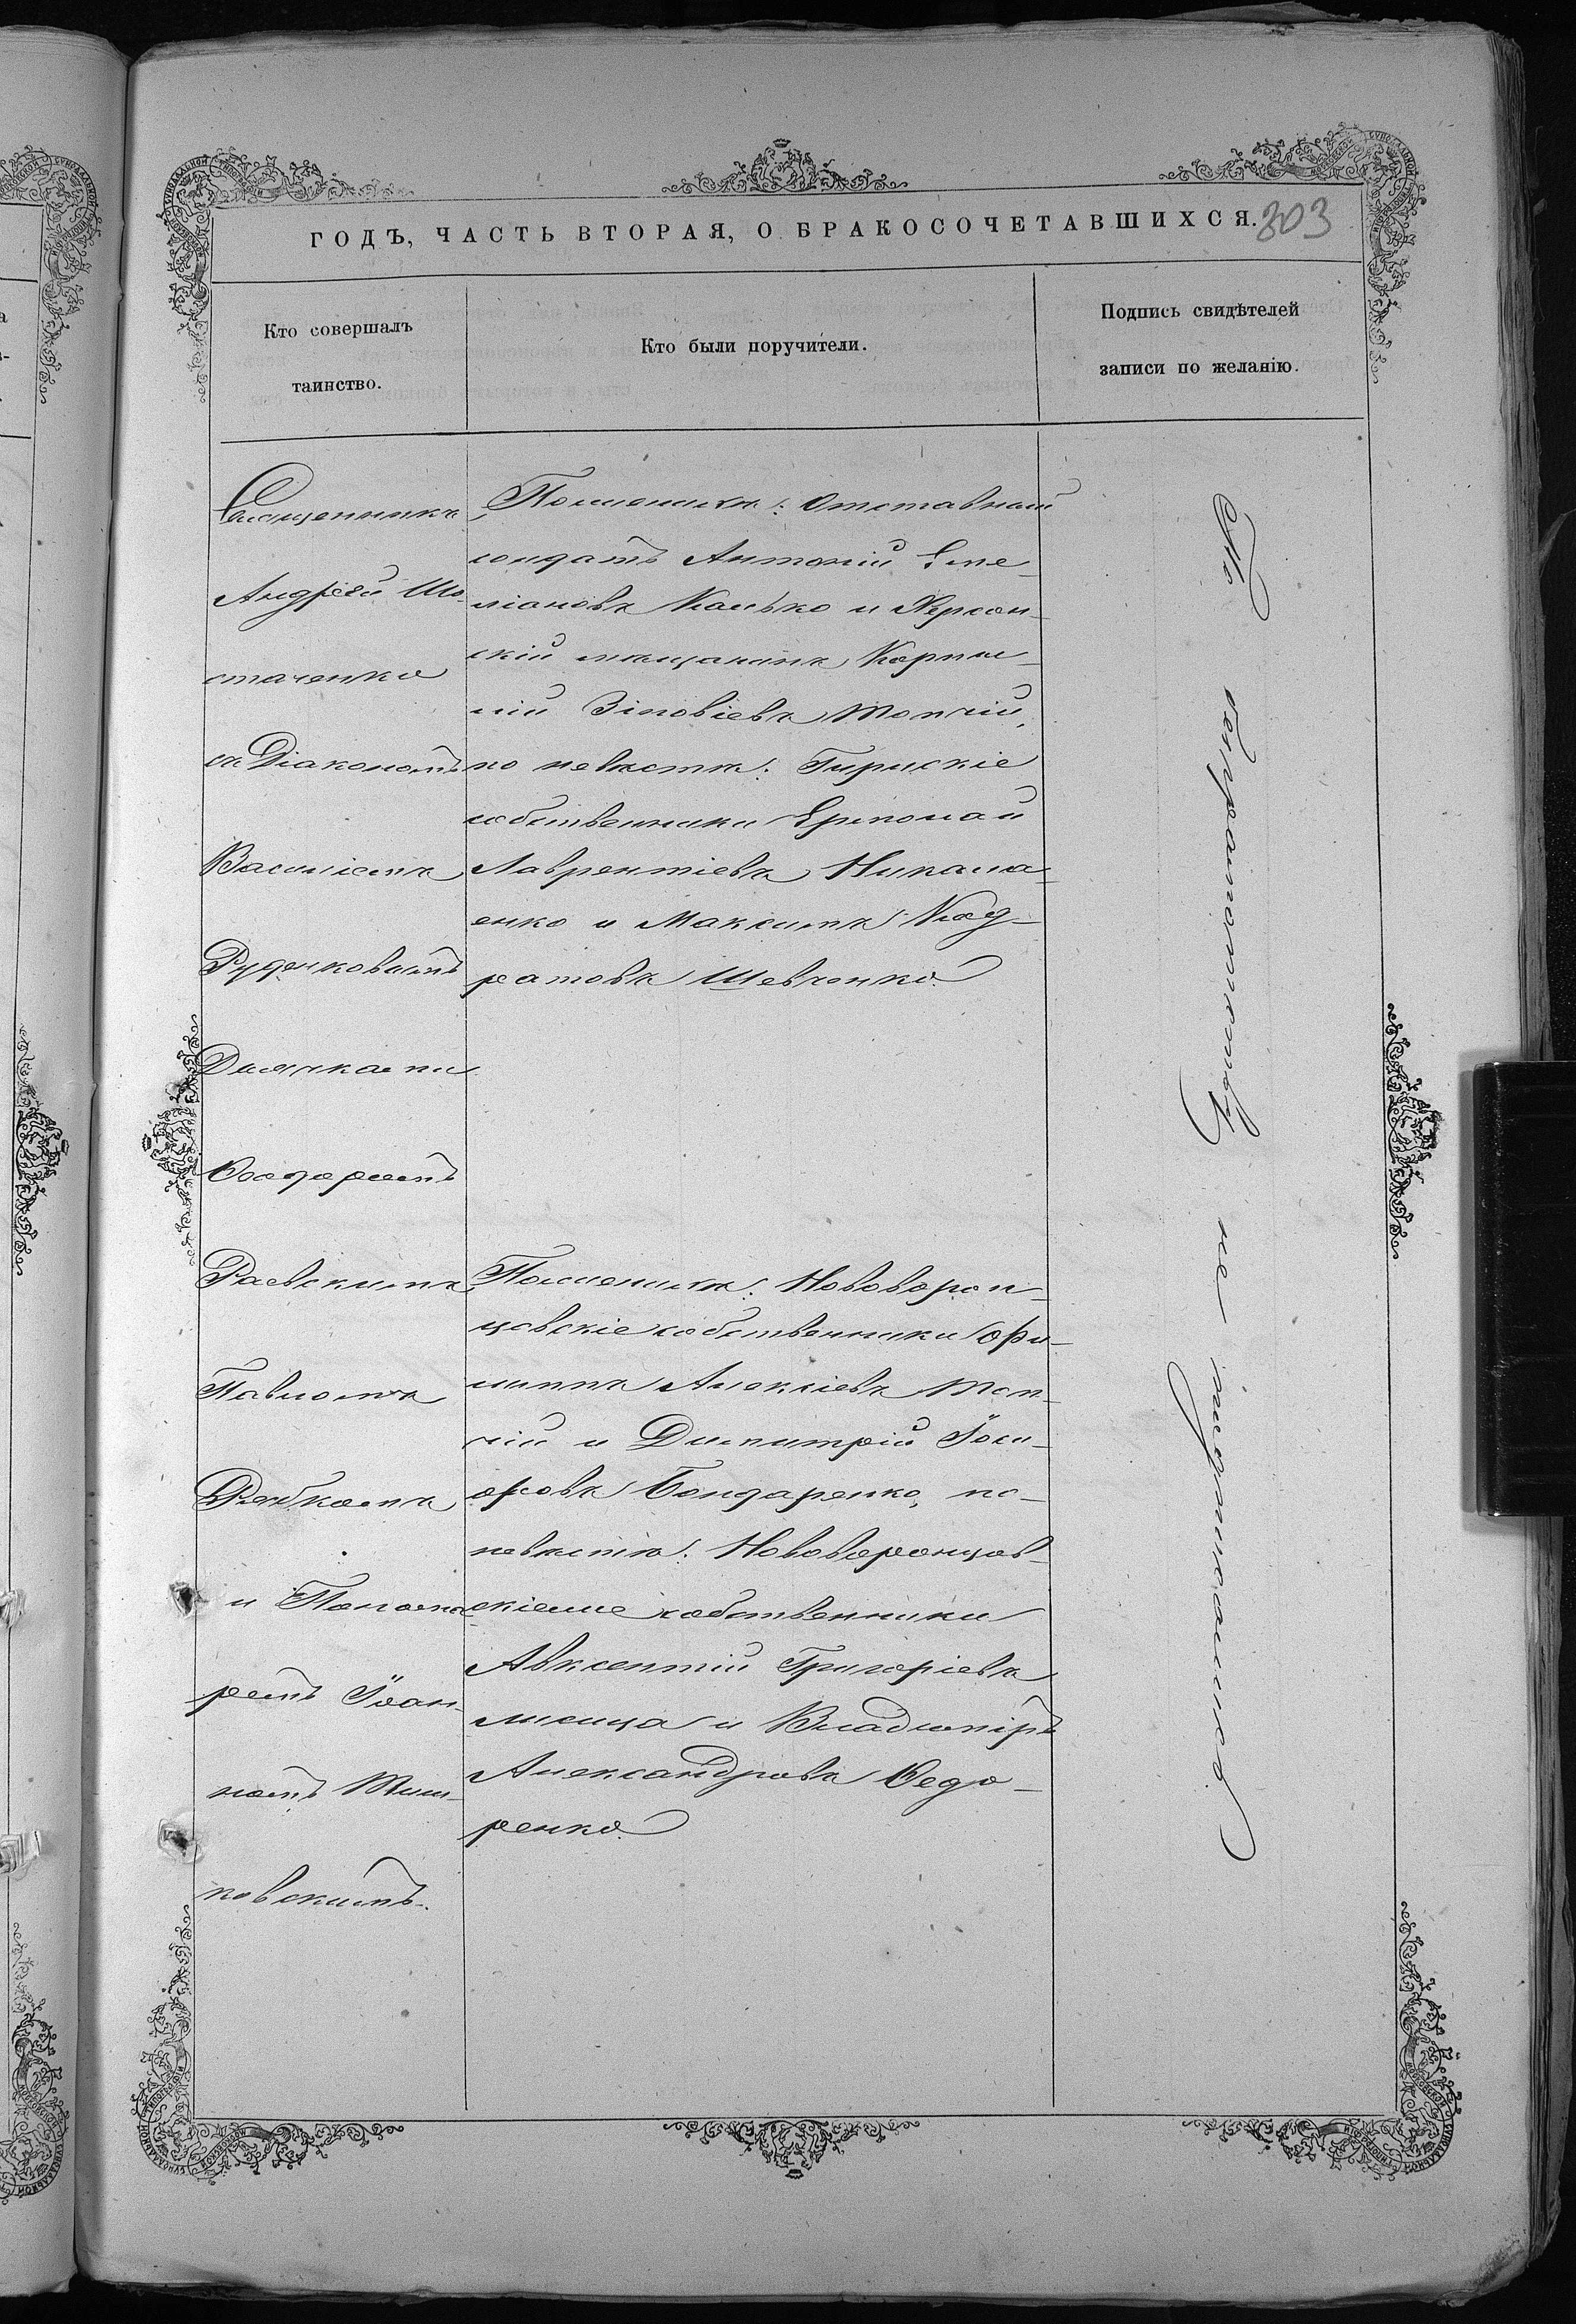 ГОДЪ, ЧАСТЬ ВТОРАЯ, О БРАКОСОЧЕТАВШИХСЯ. 303
Кто совершалъ
таинство.
Кто были поручители.
Подпись свидѣтелей
записи по желанію.
Священникъ
Андрей Шо-
стаченко
съ Діакономъ
Василіемъ
Руденковымъ
Дьячками
Ѳеодоромъ
Раевскимъ
Павломъ
и Понома-
ремъ Іоан-
номъ
ковскимъ.
По женихѣ: Отставной
солдатъ Антоній Еме-
ліановъ Калько и Херсон-
скій мѣщанинъ Корни-
лій Зіновіевъ Топчій,
по невѣстѣ: Гирискіе
собственники Ермолай
Лаврентіевъ Никола-
енко и Максимъ Код-
ратовъ Шевченко.
По женихѣ: Нововорон-
цовскіе собственники Фи-
липпъ Алексіевъ Топ-
чій и Димитрій Іоси-
фовъ Бондаренко, по
невѣстѣ: Нововоронцов-
скіе же собственники
Авксентій Григоріевъ
Лисица и Владиміръ
Александровъ Ѳедо-
ренко.